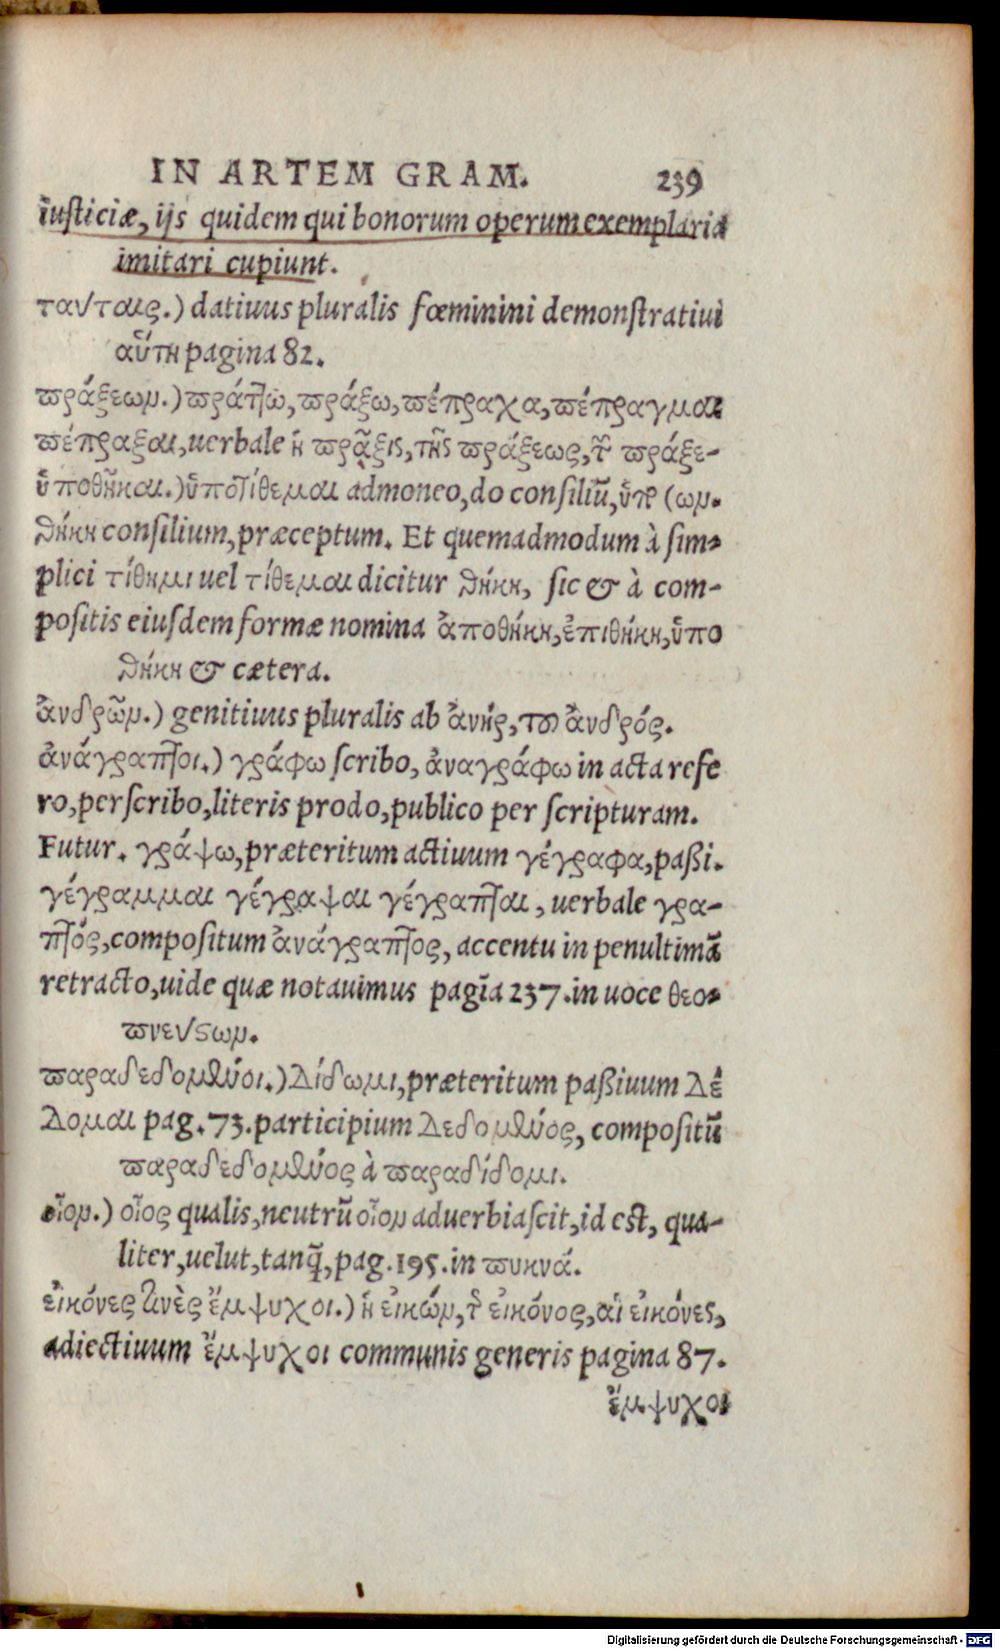 IN ARTEM GRAM. 239
iusticiæ, ijs quidem qui bonorum operum exemplaria
imitari cupiunt.
ταύταις.) datiuus pluralis fœminini demonstratiui
αὕτη pagina 82.
πράξεων.) πράττω, πράξω, πέπραχα, πέπραγμαι
πέπραξαι, uerbale ἡ πρᾶξις, τῆς πράξεως, τῶν πράξε-
ὑποθῆκαι.) ὑποτίθεμαι admoneo, do consiliū, ὑπο (ων.
θήκη consilium, præceptum. Et quemadmodum à sim-
plici τίθημι uel τίθεμαι dicitur θήκη, sic & à com-
positis eiusdem formæ nomina ἀποθήκη, ἐπιθήκη, ὑπο
θήκη & cætera.
ἀνδρῶν.) genitiuus pluralis ab ἀνήρ, τοῦ ἀνδρός.
ἀνάγραπτοι.) γράφω scribo, ἀναγράφω in acta refe
ro, perscribo, literis prodo, publico per scripturam.
Futur. γράψω, præteritum actiuum γέγραφα, paßi.
γέγραμμαι γέγραψαι γέγραπται, uerbale γρα-
πτός, compositum ἀνάγραπτος, accentu in penultimā
retracto, uide quæ notauimus pagīa 237. in uoce θεο-
πνεύστων.
παραδεδομένοι.) Δίδωμι, præteritum paßiuum Δέ
Δομαι pag. 73. participium Δεδομένος, compositū
παραδεδομένος à παραδίδομι.
οἷον.) οἷος qualis, neutrū οἷον aduerbiascit, id est, qua-
liter, uelut, tanq̃, pag. 195. in πυκνά.
εἰκόνες τινὲς ἔμψυχοι.) ἡ εἰκών, τῆς εἰκόνος, αἱ εἰκόνες,
adiectiuum ἔμψυχοι communis generis pagina 87.
ἔμψυχοι
Digitalisierung gefördert durch die Deutsche Forschungsgemeinschaft - DFG